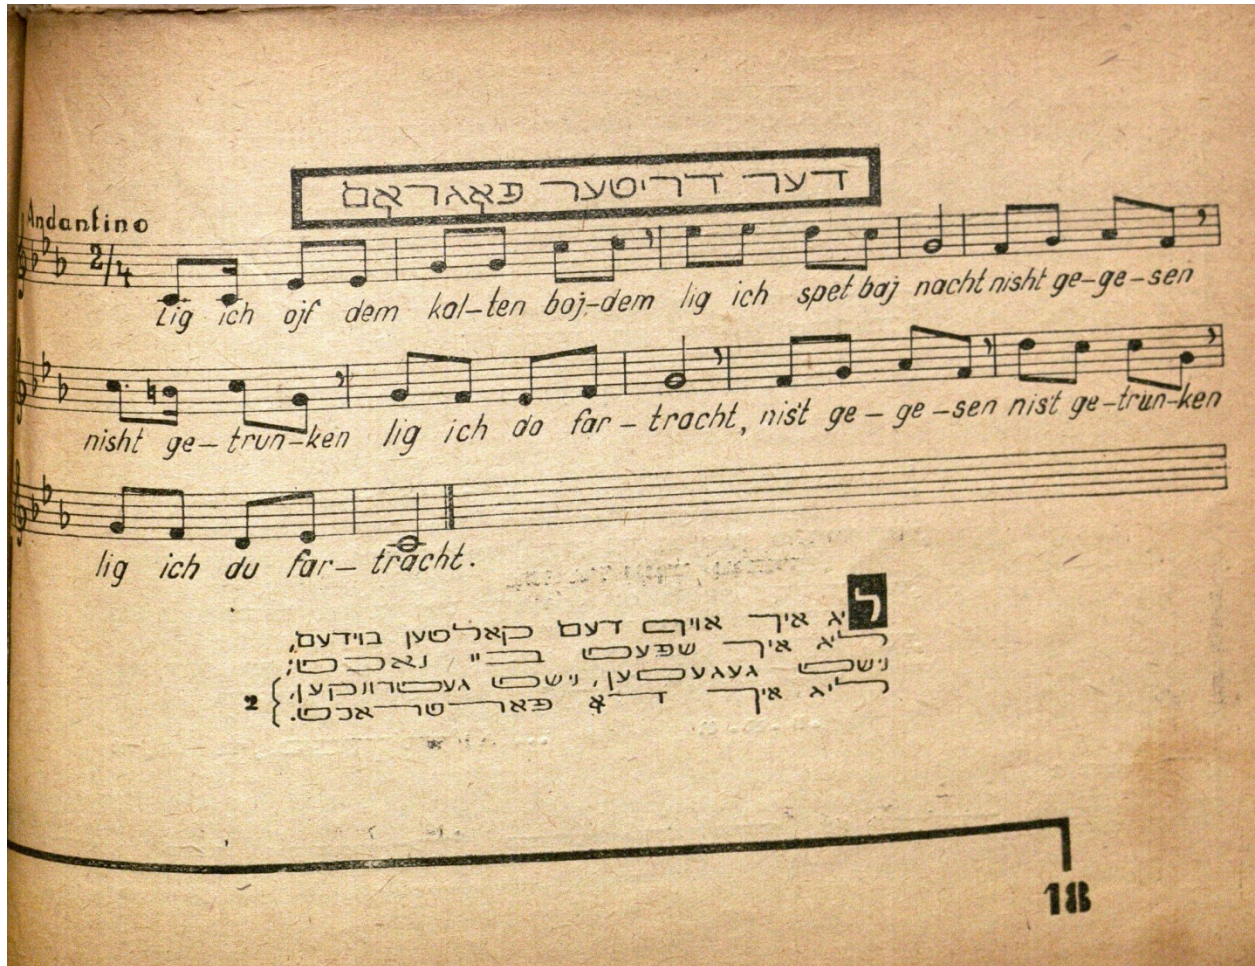 דער דריטער פּאָגראָם
Andantino
2/4
Lig ich ojf dem kal-ten boj-dem lig ich spet baj nacht nisht ge-ge-sen
nisht ge-trun-ken lig ich do far-tracht, nist ge-ge-sen nist ge-trun-ken
lig ich du far-tracht.
ליג איך אויף דעם קאלטען בוידעם,
ליג איך שפּעט ביי נאכט;
נישט געגעסען, נישט געטרונקען,
2 ליג איך דאָ פארטראכט.
18